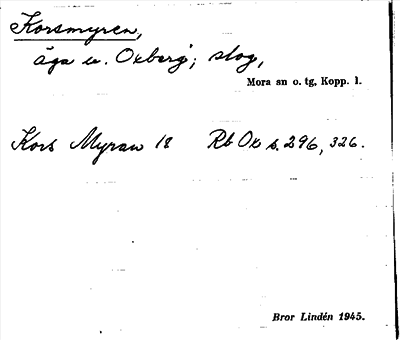 Korsmyren,
äga u. Oxberg; slog,
Mora sn o. tg, Kopp. l.
Kors Myran 18 Rb Ox s. 296, 326.
Bror Lindén 1945.